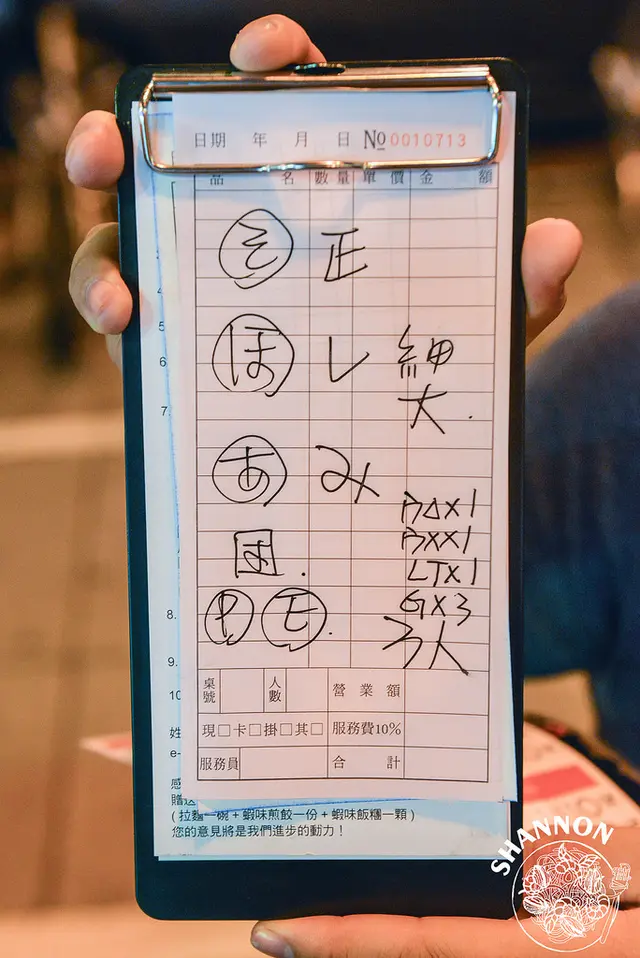 日期 年 月 日 № 0010713
品 名 數量 單價 金 額
そ 正
ほ し 細
太.
あ み
LTX1
GX3
3人
5
6
7.
8.
9.
10
桌號 人數 營業額
現□卡□掛□其□ 服務費10%
服務員 合 計
姓
e-
感
贈送
(拉麵一碗+蝦味煎餃一份+蝦味飯糰一顆)
您的意見將是我們進步的動力!
SHANNON